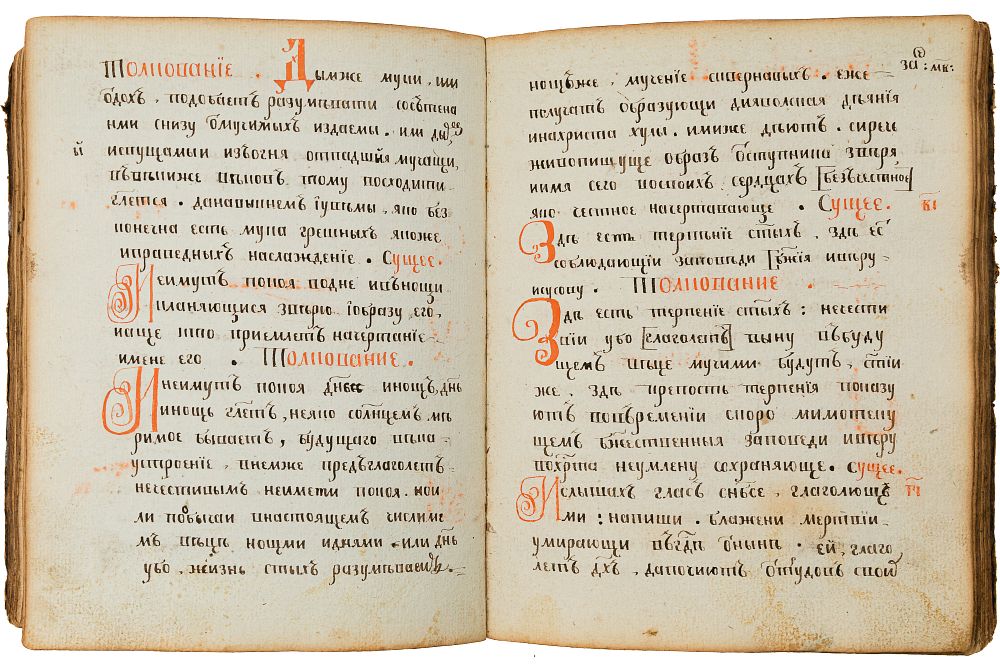 Толкованїе . Дымже муки , или
въдохъ , подобаетъ разумѣвати совѣтена
ними снизу ѿмучимыхъ издаемы . или
й испущамыи изъогня отпадшїя мучащи ,
въвѣкиже вѣковъ тому восходити
глетса . данавыкнемъ їувѣмы , яко без
конечна есть мука грешныхъ якоже
иправедныхъ наслажденїе . Сущее .
Неимутъ покоя водне ивънощи
кланяющися звѣрю їобразу его ,
иаще кто прїемлетъ начертанїе
имене его . Толкование .
Инеимутъ покоя днесе инощь , днь
инощь глетъ , неяко солнцемъ мѣ
римое бываетъ , будущаго вѣка
устроенїе , внемже предъглаголетъ
нечестивымъ неимети покоя . но
ли пообычаи внастоящемъ числиме
мъ вѣцѣ нощми иднями . или днь
убо , жизнь стыхъ разумѣваемъ .
за : мв :
нощьже , мученїе сквернавыхъ . еже
получатъ образующи дияволская дѣянїя
инахриста хулы . имиже дѣютъ . сирече
живопищуще образъ ѿступника звѣря
иимя сего восвоихъ сердцахъ [безъчестное]
яко честное начертавающе . Сущее .
Здѣ есть терпѣнїе стыхъ , здѣ
соблюдающїи заповеди бжїя ивѣру
исусову . Толкование .
Здѣ есть терпенїе стыхъ : нечести
вїи убо [глаголетъ] вѣку въбуду
щемъ вѣце мучими будутъ , стїи
же , здѣ крепость терпенїя показу
ютъ вовъременїи скоро мимотеку
щемъ бжественныя заповеди ивѣру
вохрта неумлену сохраняюще . Сущее .
Ислышахъ гласъ снбсе , глаголющь
ми : напиши . блажени мертвїи
умирающи ѿнынѣ . ей , глаго
летъ дхъ , дапочиютъ ѿтудовъ своихъ